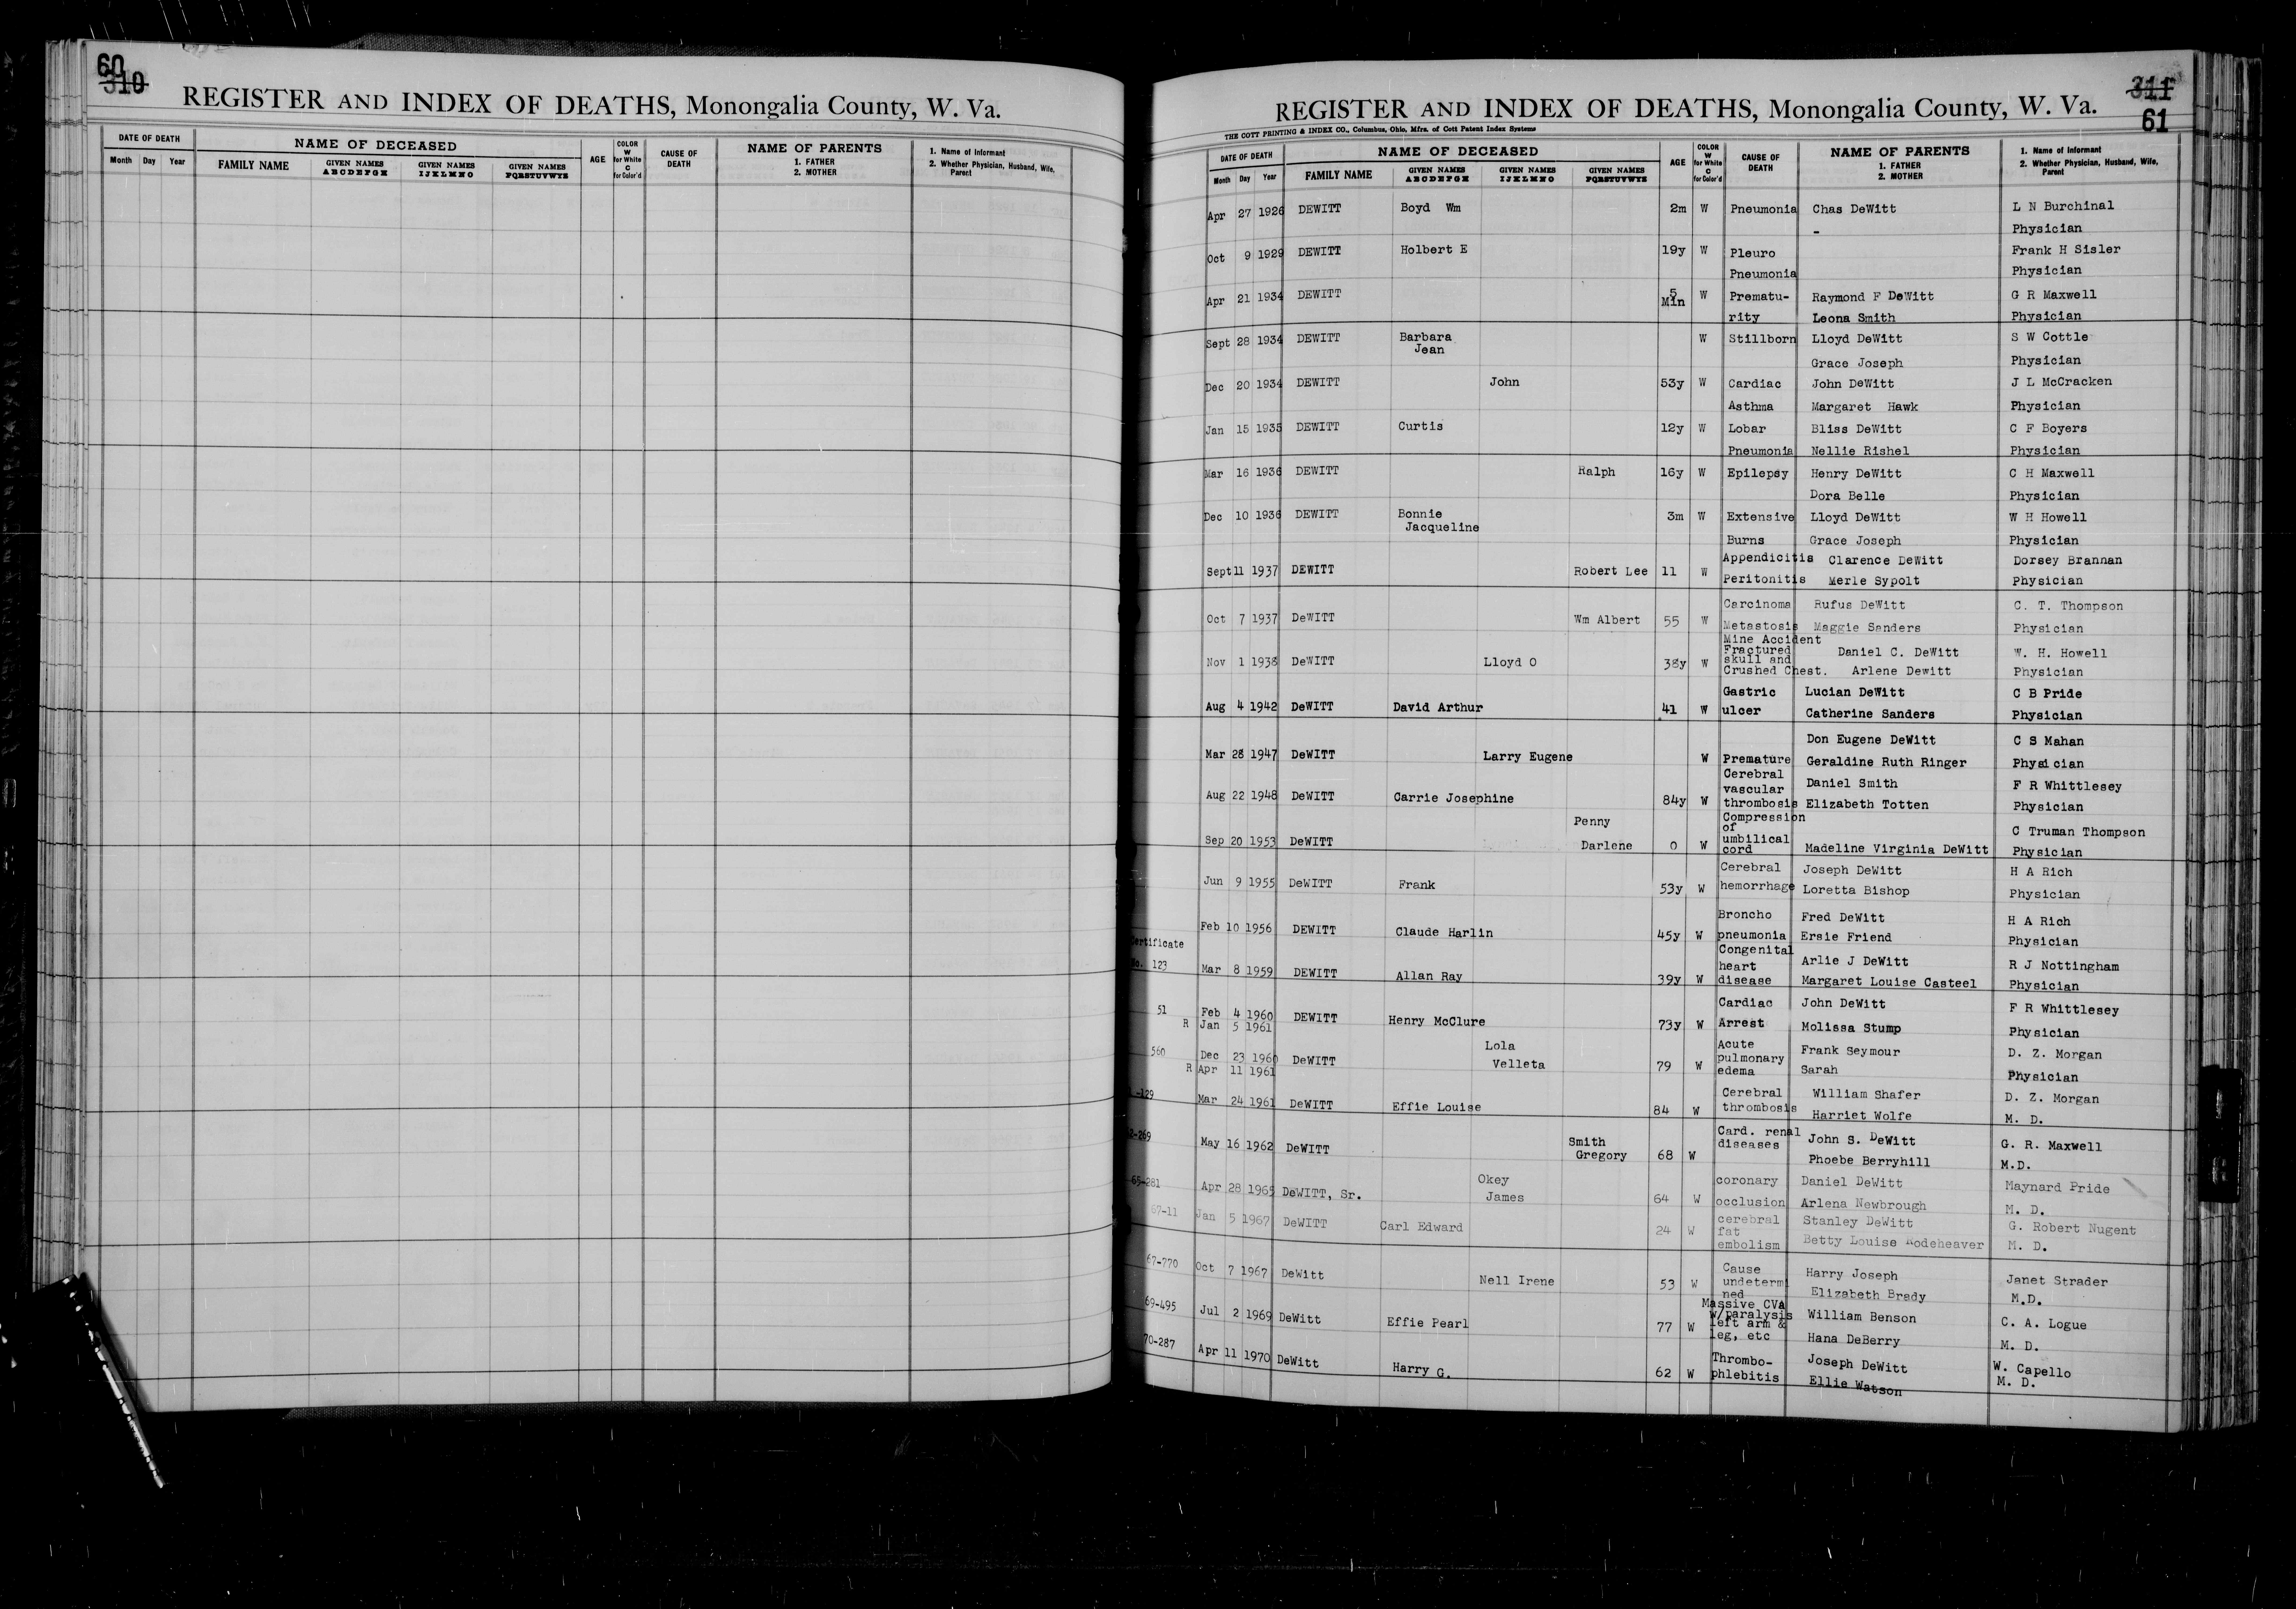 60
310
REGISTER AND INDEX OF DEATHS, Monongalia County, W. Va.
DATE OF DEATH NAME OF DECEASED AGE COLOR W for White C for Color'd CAUSE OF DEATH NAME OF PARENTS 1. FATHER 2. MOTHER 1. Name of Informant 2. Whether Physician, Husband, Wife, Parent
Month Day Year FAMILY NAME GIVEN NAMES ABCDEFGH GIVEN NAMES IJKLMNO GIVEN NAMES PQRSTUVWYZ
311
61
REGISTER AND INDEX OF DEATHS, Monongalia County, W. Va.
THE COTT PRINTING & INDEX CO., Columbus, Ohio, Mfrs. of Cott Patent Index Systems
DATE OF DEATH NAME OF DECEASED AGE COLOR W for White C for Color'd CAUSE OF DEATH NAME OF PARENTS 1. FATHER 2. MOTHER 1. Name of Informant 2. Whether Physician, Husband, Wife, Parent
Month Day Year FAMILY NAME GIVEN NAMES ABCDEFGH GIVEN NAMES IJKLMNO GIVEN NAMES PQRSTUVWYZ
Apr 27 1926 DEWITT Boyd Wm 2m W Pneumonia Chas DeWitt L N Burchinal
- Physician
Oct 9 1929 DEWITT Holbert E 19y W Pleuro Frank H Sisler
Pneumonia Physician
Apr 21 1934 DEWITT 5 Min W Prematu- Raymond F DeWitt G R Maxwell
rity Leona Smith Physician
Sept 28 1934 DEWITT Barbara Jean W Stillborn Lloyd DeWitt S W Cottle
Grace Joseph Physician
Dec 20 1934 DEWITT John 53y W Cardiac John DeWitt J L McCracken
Asthma Margaret Hawk Physician
Jan 15 1935 DEWITT Curtis 12y W Lobar Bliss DeWitt C F Boyers
Pneumonia Nellie Rishel Physician
Mar 16 1936 DEWITT Ralph 16y W Epilepsy Henry DeWitt C H Maxwell
Dora Belle Physician
Dec 10 1936 DEWITT Bonnie Jacqueline 3m W Extensive Lloyd DeWitt W H Howell
Burns Grace Joseph Physician
Sept 11 1937 DEWITT Robert Lee 11 W Appendicitis Clarence DeWitt Dorsey Brannan
Peritonitis Merle Sypolt Physician
Oct 7 1937 DeWITT Wm Albert 55 W Carcinoma Rufus DeWitt C. T. Thompson
Metastosis Maggie Sanders Physician
Nov 1 1938 DeWITT Lloyd O 38y W Mine Accident Fractured skull and Daniel C. DeWitt W. H. Howell
Crushed Chest. Arlene Dewitt Physician
Aug 4 1942 DeWITT David Arthur 41 W Gastric Lucian DeWitt C B Pride
ulcer Catherine Sanders Physician
Mar 28 1947 DeWITT Larry Eugene W Don Eugene DeWitt C S Mahan
Premature Geraldine Ruth Ringer Physician
Aug 22 1948 DeWITT Carrie Josephine 84y W Cerebral vascular Daniel Smith F R Whittlesey
thrombosis Elizabeth Totten Physician
Sep 20 1953 DeWITT Penny Darlene 0 W Compression of umbilical C Truman Thompson
cord Madeline Virginia DeWitt Physician
Jun 9 1955 DeWITT Frank 53y W Cerebral Joseph DeWitt H A Rich
hemorrhage Loretta Bishop Physician
Feb 10 1956 DEWITT Claude Harlin 45y W Broncho Fred DeWitt H A Rich
pneumonia Ersie Friend Physician
Certificate
No. 123 Mar 8 1959 DEWITT Allan Ray 39y W Congenital heart Arlie J DeWitt R J Nottingham
disease Margaret Louise Casteel Physician
51 Feb 4 1960 DEWITT Henry McClure 73y W Cardiac John DeWitt F R Whittlesey
R Jan 5 1961 Arrest Molissa Stump Physician
560 Dec 23 1960 DeWITT Lola Velleta 79 W Acute pulmonary Frank Seymour D. Z. Morgan
R Apr 11 1961 edema Sarah Physician
-129 Mar 24 1961 DeWITT Effie Louise 84 W Cerebral William Shafer D. Z. Morgan
thrombosis Harriet Wolfe M. D.
2-269 May 16 1962 DeWITT Smith Gregory 68 W Card. renal John S. DeWitt G. R. Maxwell
diseases Phoebe Berryhill M.D.
65-281 Apr 28 1965 DeWITT, Sr. Okey James 64 W coronary Daniel DeWitt Maynard Pride
occlusion Arlena Newbrough M. D.
67-11 Jan 5 1967 DeWITT Carl Edward 24 W cerebral fat Stanley DeWitt G. Robert Nugent
embolism Betty Louise Rodeheaver M. D.
67-770 Oct 7 1967 DeWitt Nell Irene 53 W Cause undetermi Harry Joseph Janet Strader
ned Elizabeth Brady M.D.
69-495 Jul 2 1969 DeWitt Effie Pearl 77 W Massive CVA w/paralysis William Benson C. A. Logue
left arm & leg, etc Hana DeBerry M. D.
70-287 Apr 11 1970 DeWitt Harry G. 62 W Thrombo- Joseph DeWitt W. Capello
phlebitis Ellie Watson M. D.